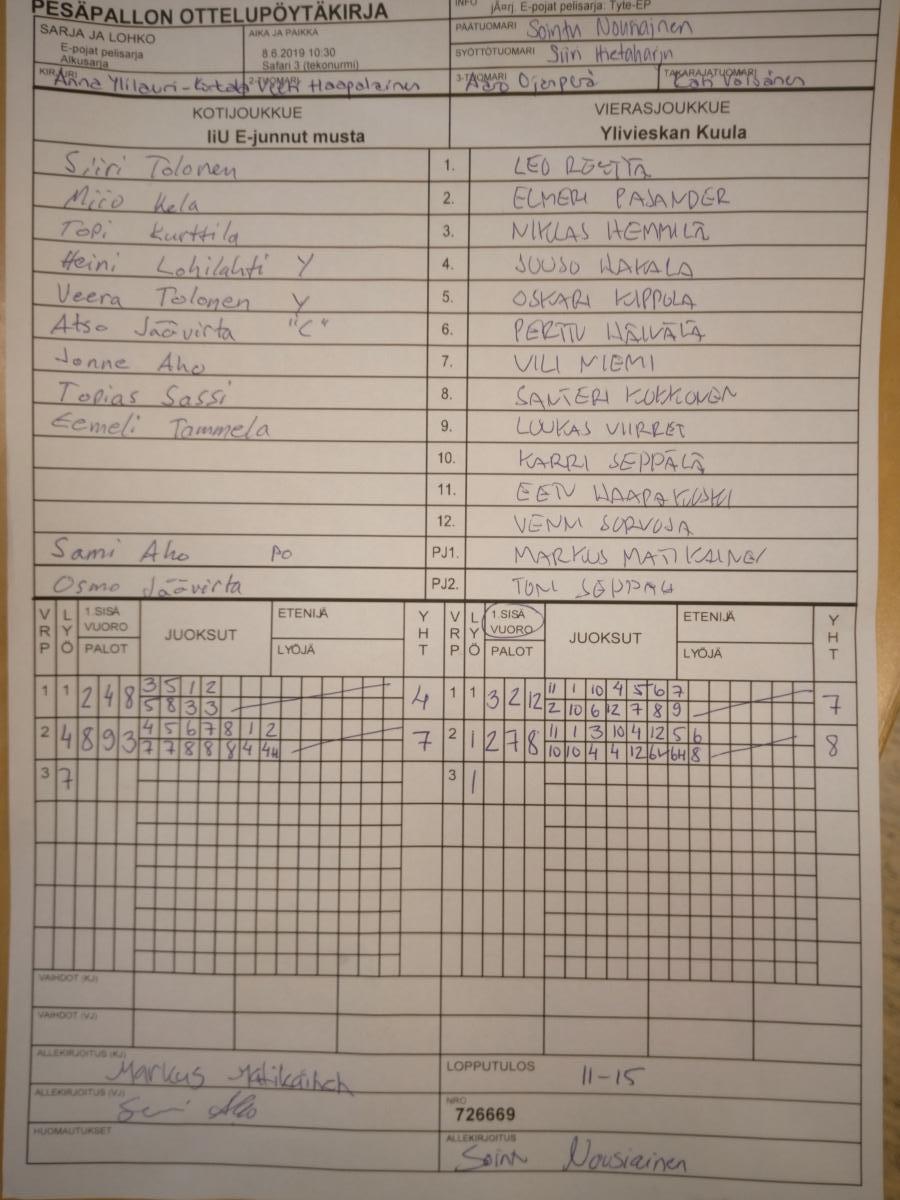 PESÄPALLON OTTELUPÖYTÄKIRJA
INFO jÄarj. E-pojat pelisarja: Tyte-EP
SARJA JA LOHKO
E-pojat pelisarja
Alkusarja
AIKA JA PAIKKA
8.6.2019 10:30
Safari 3 (tekonurmi)
PÄÄTUOMARI Sointu Nousiainen
SYÖTTÖTUOMARI Siiri Hietaharju
KIRJURI Anna Ylilauri-
2-TUOMARI Veeti Haapalainen
3-TUOMARI Aaro Ojanperä
TAKARAJATUOMARI Väisänen
KOTIJOUKKUE
IiU E-junnut musta
VIERASJOUKKUE
Ylivieskan Kuula
Siiri Tolonen 1. LEO
Miio Kela 2. ELMERI PAJANDER
Topi Kurttila 3. NIKLAS HEMMILÄ
Heini Lohilahti Y 4. JUUSO HAKALA
Veera Tolonen Y 5. OSKARI KIPPOLA
Atso Jäävirta "C" 6. PERTTU
Jonne Aho 7. VILI NIEMI
Topias Sassi 8. SANTERI KUKKONEN
Eemeli Tammela 9. LUUKAS VIIRRET
10. KARRI SEPPÄLÄ
11. EETU HAAPAKOSKI
12. VENNI SORVOJA
Sami Aho PO PJ1. MARKUS MATIKAINEN
Osmo Jäävirta PJ2. TONI SEPPÄLÄ
VRP LYÖ 1.SISÄ VUORO PALOT JUOKSUT ETENIJÄ LYÖJÄ YHT VRP LYÖ 1.SISÄ VUORO PALOT JUOKSUT ETENIJÄ LYÖJÄ YHT
1 1 2 4 8 3 5 1 2 4 1 1 3 2 12 11 1 10 4 5 6 7 7
5 8 3 3 2 10 6 12 7 8 9
2 4 8 9 3 4 5 6 7 8 1 2 7 2 1 2 7 8 11 1 3 10 4 12 5 6 8
7 7 8 8 8 4 4H 10 10 4 4 12 6H 8
3 7 3 1
VAIHDOT (KJ)
VAIHDOT (VJ)
ALLEKIRJOITUS (KJ) Markus Matikainen
LOPPUTULOS 11-15
ALLEKIRJOITUS (VJ) Sami Aho
NRO
726669
HUOMAUTUKSET
ALLEKIRJOITUS
Sointu Nousiainen